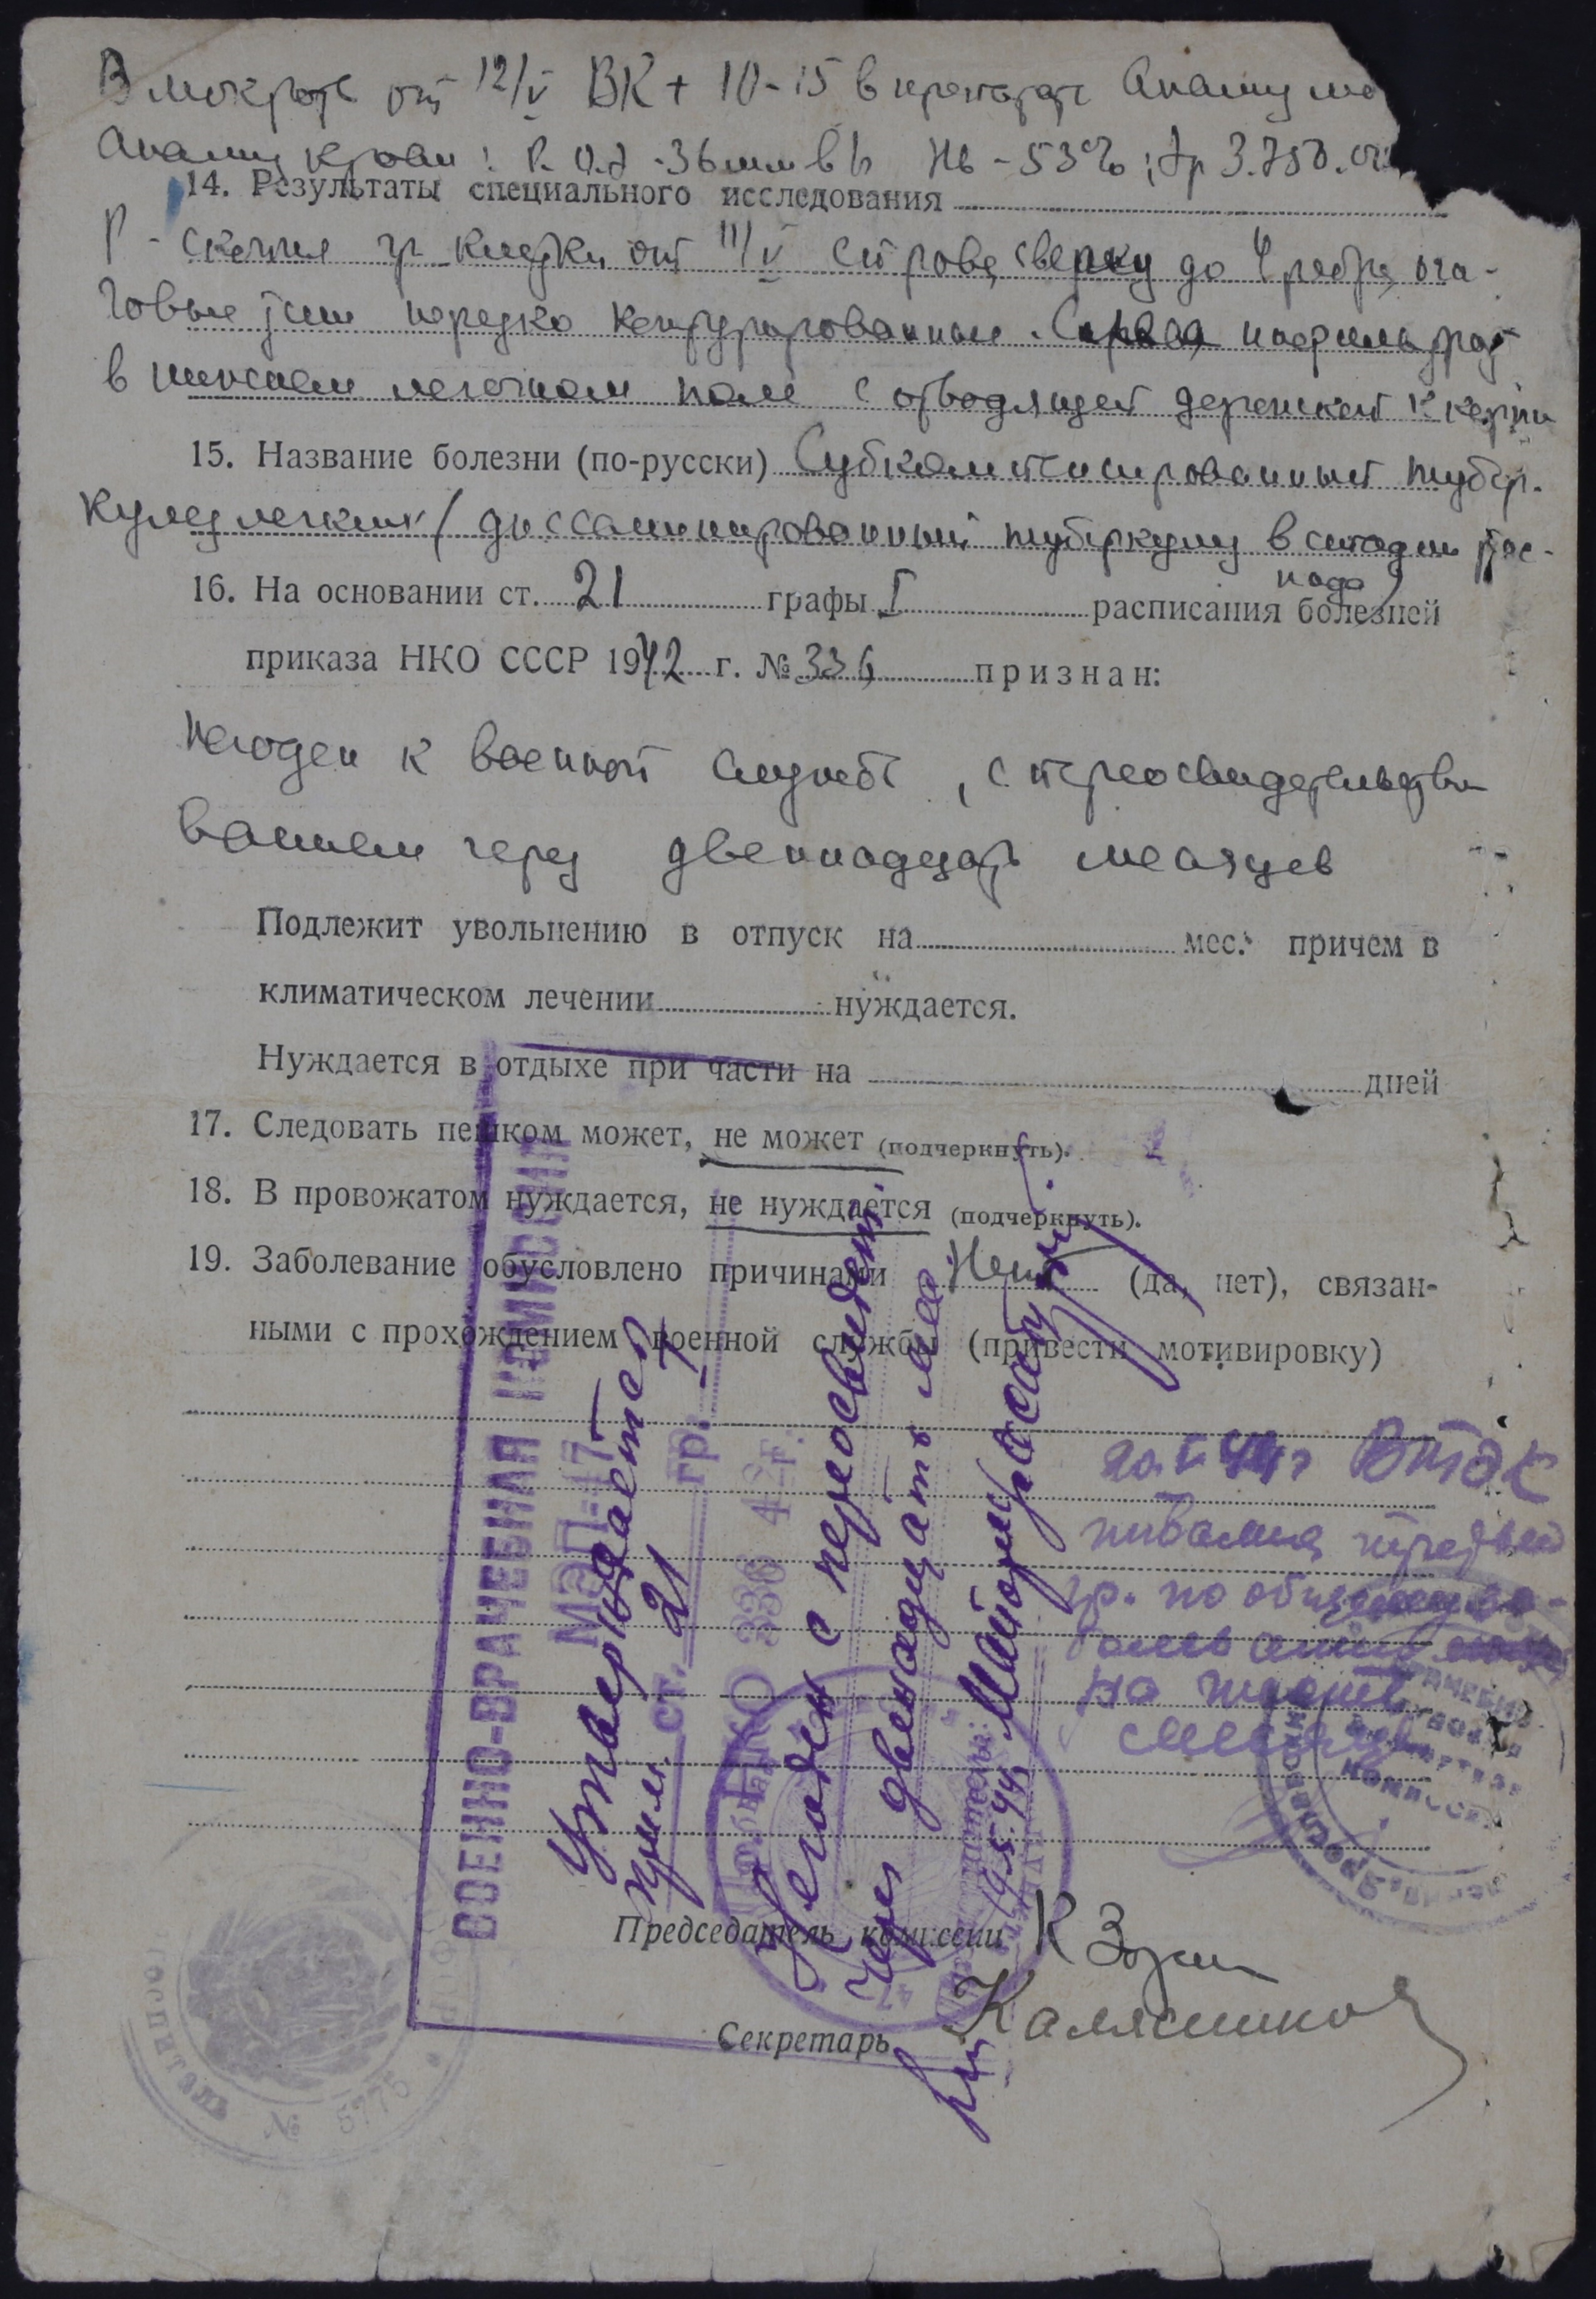 В мокроте от 12/V ВК + 10-15 в препарате Анализ мо
Анализ крови: Р.О.Э -36мм в 1ч Нв -53%; Эр 3.750.
14. Результаты специального исследования
Р-скопия гр клетки от 11/V справа, сверху до 4 ребра, оча-
говые тени нередко конфурированные. Справа инфильтрат
в нижнем легочном поле с отводящей дорожкой к корню
15. Название болезни (по-русски) Субкомпенсированный тубер-
кулез легких (диссеминированный туберкулез в стадии рас-
пада)
16. На основании ст. 21 графы I расписания болезней
приказа НКО СССР 1942 г. № 336 признан:
Негоден к военной службе, с переосвидетельство
ванием через двеннадцать месяцев
Подлежит увольнению в отпуск на мес. причем в
климатическом лечении нуждается.
Нуждается в отдыхе при части на дней
17. Следовать пешком может, не может (подчеркнуть).
18. В провожатом нуждается, не нуждается (подчеркнуть).
19. Заболевание обусловлено причинами Нет (да, нет), связан-
ными с прохождением военной службы (привести мотивировку)
ВОЕННО-ВРАЧЕБНАЯ КОМИССИЯ
МЭП-47
Утверждается
Прим. ст. 21 гр. I
НКО 336 42 г.
Негоден с переосвидет.
через двенадцать мес
19.5.44. Майор м/с
20.V-44г ВТЭК
инвалид третьей
гр. по общему за-
болеванию
на
месяцев
КОМИССИЯ
Председатель комиссии
Секретарь
госпиталь
№ 5775